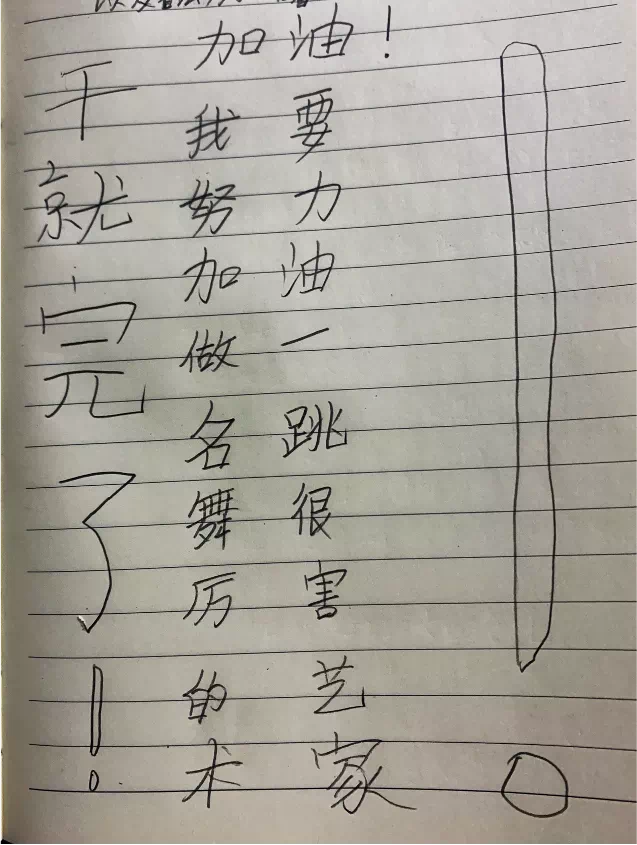 加油!
我要
努力
加油
做一
名跳
舞很
厉害
的艺
术家
干就完了!
!